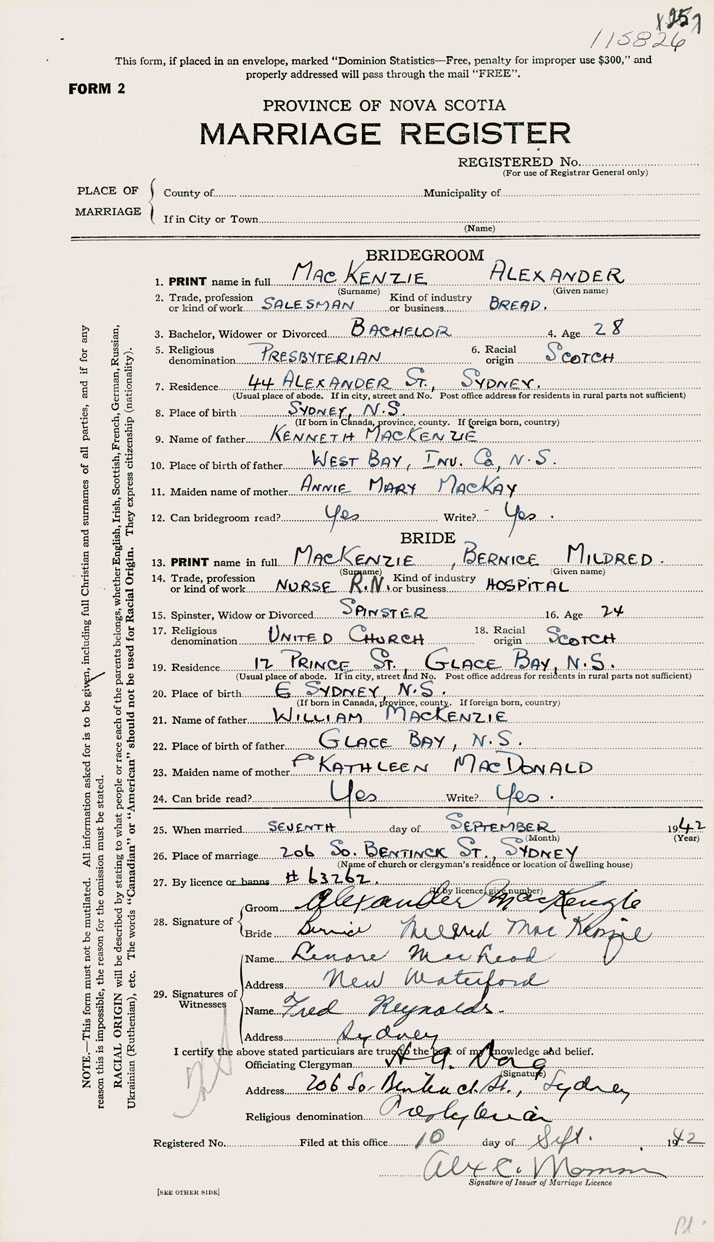 115826
This form, if placed in an envelope, marked "Dominion Statistics—Free, penalty for improper use $300," and
properly addressed will pass through the mail "FREE".
FORM 2
PROVINCE OF NOVA SCOTIA
MARRIAGE REGISTER
REGISTERED No.
(For use of Registrar General only)
PLACE OF MARRIAGE
County of Municipality of
If in City or Town
(Name)
BRIDEGROOM
1. PRINT name in full MacKenzie Alexander
(Surname) (Given name)
2. Trade, profession or kind of work Salesman Kind of industry or business Bread.
3. Bachelor, Widower or Divorced Bachelor 4. Age 28
5. Religious denomination Presbyterian 6. Racial origin Scotch
7. Residence 44 Alexander St., Sydney.
(Usual place of abode. If in city, street and No. Post office address for residents in rural parts not sufficient)
8. Place of birth Sydney, N.S.
(If born in Canada, province, county. If foreign born, country)
9. Name of father Kenneth MacKenzie
10. Place of birth of father West Bay, Inv. Co, N.S.
11. Maiden name of mother Annie Mary MacKay
12. Can bridegroom read? Yes Write? Yes.
BRIDE
13. PRINT name in full MacKenzie, Bernice Mildred.
(Surname) (Given name)
14. Trade, profession or kind of work Nurse R.N. Kind of industry or business Hospital
15. Spinster, Widow or Divorced Spinster 16. Age 24
17. Religious denomination United Church 18. Racial origin Scotch
19. Residence 12 Prince St., Glace Bay, N.S.
(Usual place of abode. If in city, street and No. Post office address for residents in rural parts not sufficient)
20. Place of birth Sydney, N.S.
(If born in Canada, province, county. If foreign born, country)
21. Name of father William MacKenzie
22. Place of birth of father Glace Bay, N.S.
23. Maiden name of mother Kathleen MacDonald
24. Can bride read? Yes Write? Yes.
25. When married seventh day of September 1942
(Month) (Year)
26. Place of marriage 206 So. Bentinck St., Sydney
(Name of church or clergyman's residence or location of dwelling house)
27. By licence or banns # 63262.
(If by licence, give number)
28. Signature of
Groom Alexander MacKenzie
Bride Bernice Mildred MacKenzie
29. Signatures of Witnesses
Name Lenore MacLeod
Address New Waterford
Name Fred Reynolds.
Address Sydney
I certify the above stated particulars are true to the best of my knowledge and belief.
Officiating Clergyman
(Signature)
Address 206 So. Bentinck St., Sydney
Religious denomination Presbyterian
Registered No. Filed at this office 10 day of Sept. 1942
Alex C.
Signature of Issuer of Marriage Licence
[SEE OTHER SIDE]
NOTE.—This form must not be mutilated. All information asked for is to be given, including full Christian and surnames of all parties, and if for any
reason this is impossible, the reason for the omission must be stated.
RACIAL ORIGIN will be described by stating to what people or race each of the parents belongs, whether English, Irish, Scottish, French, German, Russian,
Ukrainian (Ruthenian), etc. The words "Canadian" or "American" should not be used for Racial Origin. They express citizenship (nationality).